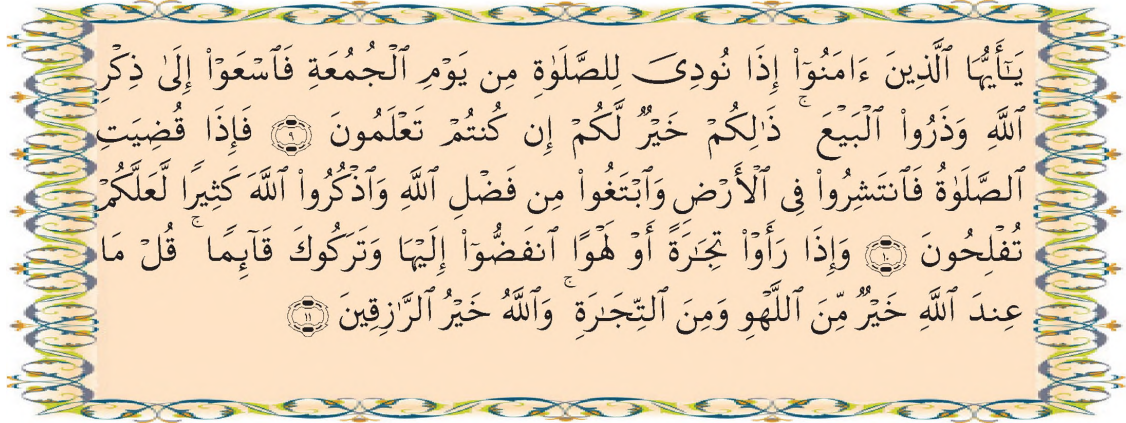 يَـٰٓأَيُّهَا ٱلَّذِينَ ءَامَنُوٓا۟ إِذَا نُودِىَ لِلصَّلَوٰةِ مِن يَوْمِ ٱلْجُمُعَةِ فَٱسْعَوْا۟ إِلَىٰ ذِكْرِ
ٱللَّهِ وَذَرُوا۟ ٱلْبَيْعَ ۚ ذَٰلِكُمْ خَيْرٌ لَّكُمْ إِن كُنتُمْ تَعْلَمُونَ ٩ فَإِذَا قُضِيَتِ
ٱلصَّلَوٰةُ فَٱنتَشِرُوا۟ فِى ٱلْأَرْضِ وَٱبْتَغُوا۟ مِن فَضْلِ ٱللَّهِ وَٱذْكُرُوا۟ ٱللَّهَ كَثِيرًا لَّعَلَّكُمْ
تُفْلِحُونَ ١٠ وَإِذَا رَأَوْا۟ تِجَـٰرَةً أَوْ لَهْوًا ٱنفَضُّوٓا۟ إِلَيْهَا وَتَرَكُوكَ قَآئِمًا ۚ قُلْ مَا
عِندَ ٱللَّهِ خَيْرٌ مِّنَ ٱللَّهْوِ وَمِنَ ٱلتِّجَـٰرَةِ ۚ وَٱللَّهُ خَيْرُ ٱلرَّٰزِقِينَ ١١